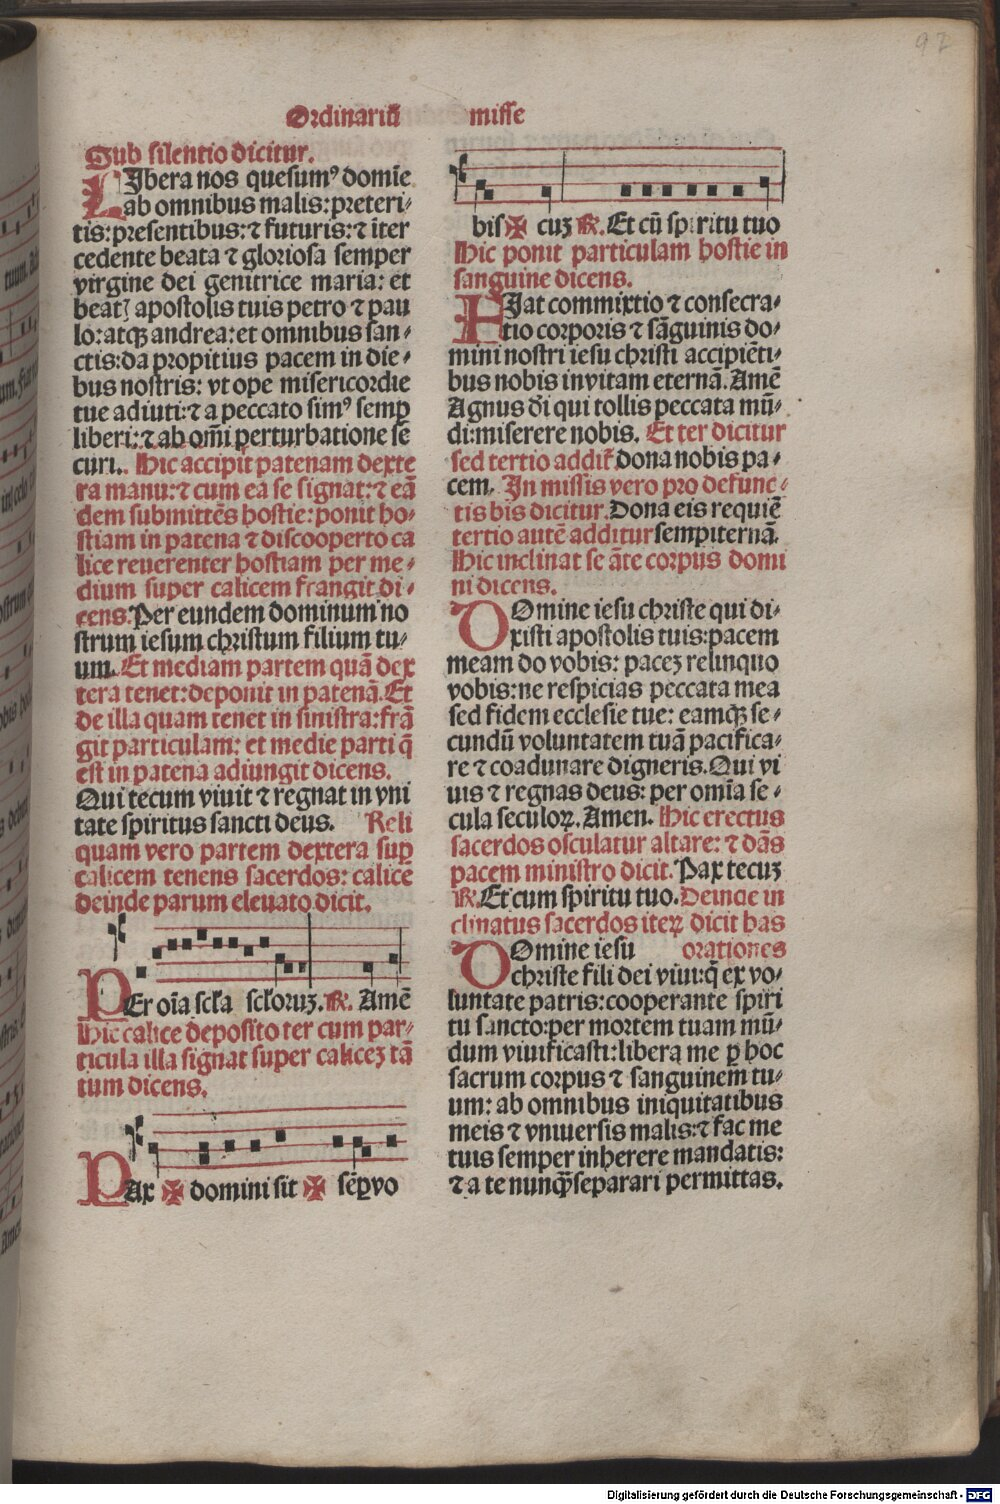 97
Ordinariū misse
Sub silentio dicitur.
LIbera nos quesumꝰ domīe
ab omnibus malis: preteri⸗
tis: presentibus: ⁊ futuris: ⁊ īter
cedente beata ⁊ gloriosa semper
virgine dei genitrice maria: et
beatꝭ apostolis tuis petro ⁊ pau
lo: atqꝫ andrea: et omnibus san⸗
ctis: da propitius pacem in die⸗
bus nostris: vt ope misericordie
tue adiuti: ⁊ a peccato simꝰ semꝑ
liberi: ⁊ ab om̄i perturbatione se
curi. Hic accipit patenam dexte
ra manu: ⁊ cum ea se signat: ⁊ eā
dem submittēs hostie: ponit ho⸗
stiam in patena ⁊ discooperto ca
lice reuerenter hostiam per me⸗
dium super calicem frangit di⸗
cens. Per eundem dominum no
strum iesum christum filium tu⸗
um. Et mediam partem quā dex
tera tenet: deponit in patenā. Et
de illa quam tenet in sinistra: frā
git particulam: et medie parti q̄
est in patena adiungit dicens.
Qui tecum viuit ⁊ regnat in vni
tate spiritus sancti deus. Reli
quam vero partem dextera suꝑ
calicem tenens sacerdos: calicē
deinde parum eleuato dicit.
PEr oīa scl̄a scl̄oruꝫ. ℟. Amē
Hic calice deposito ter cum par⸗
ticula illa signat super caliceꝫ tā
tum dicens.
PAx ✠ domini sit ✠ sēꝑ vo
bis ✠ cuꝫ ℟. Et cū spiritu tuo
Hic ponit particulam hostie in
sanguine dicens.
FIat commixtio ⁊ consecra⸗
tio corporis ⁊ sāguinis do⸗
mini nostri iesu christi accipiēti⸗
bus nobis in vitam eternā. Amē
Agnus d̄i qui tollis peccata mū⸗
di: miserere nobis. Et ter dicitur
sed tertio addit̄ dona nobis pa⸗
cem. In missis vero pro defunc⸗
tis bis dicitur. Dona eis requiē
tertio autē additur sempiternā.
Hic inclinat se āte corpus domi
ni dicens.
DOmine iesu christe qui di⸗
xisti apostolis tuis: pacem
meam do vobis: paceꝫ relinquo
vobis: ne respicias peccata mea
sed fidem ecclesie tue: eamqꝫ se⸗
cundū voluntatem tuā pacifica⸗
re ⁊ coadunare digneris. Qui vi
uis ⁊ regnas deus: per om̄ia se⸗
cula seculoꝝ. Amen. Hic erectus
sacerdos osculatur altare: ⁊ dās
pacem ministro dicit. Pax tecuꝫ
℟. Et cum spiritu tuo. Deinde in
clinatus sacerdos iteꝝ dicit has
DOmine iesu orationes
christe fili dei viui: q̄ ex vo⸗
luntate patris: cooperante spiri
tu sancto: per mortem tuam mū⸗
dum viuificasti: libera me ꝑ hoc
sacrum corpus ⁊ sanguinem tu⸗
um: ab omnibus iniquitatibus
meis ⁊ vniuersis malis: ⁊ fac me
tuis semper inherere mandatis:
⁊ a te nunqꝫ separari permittas.
Digitalisierung gefördert durch die Deutsche Forschungsgemeinschaft - DFG